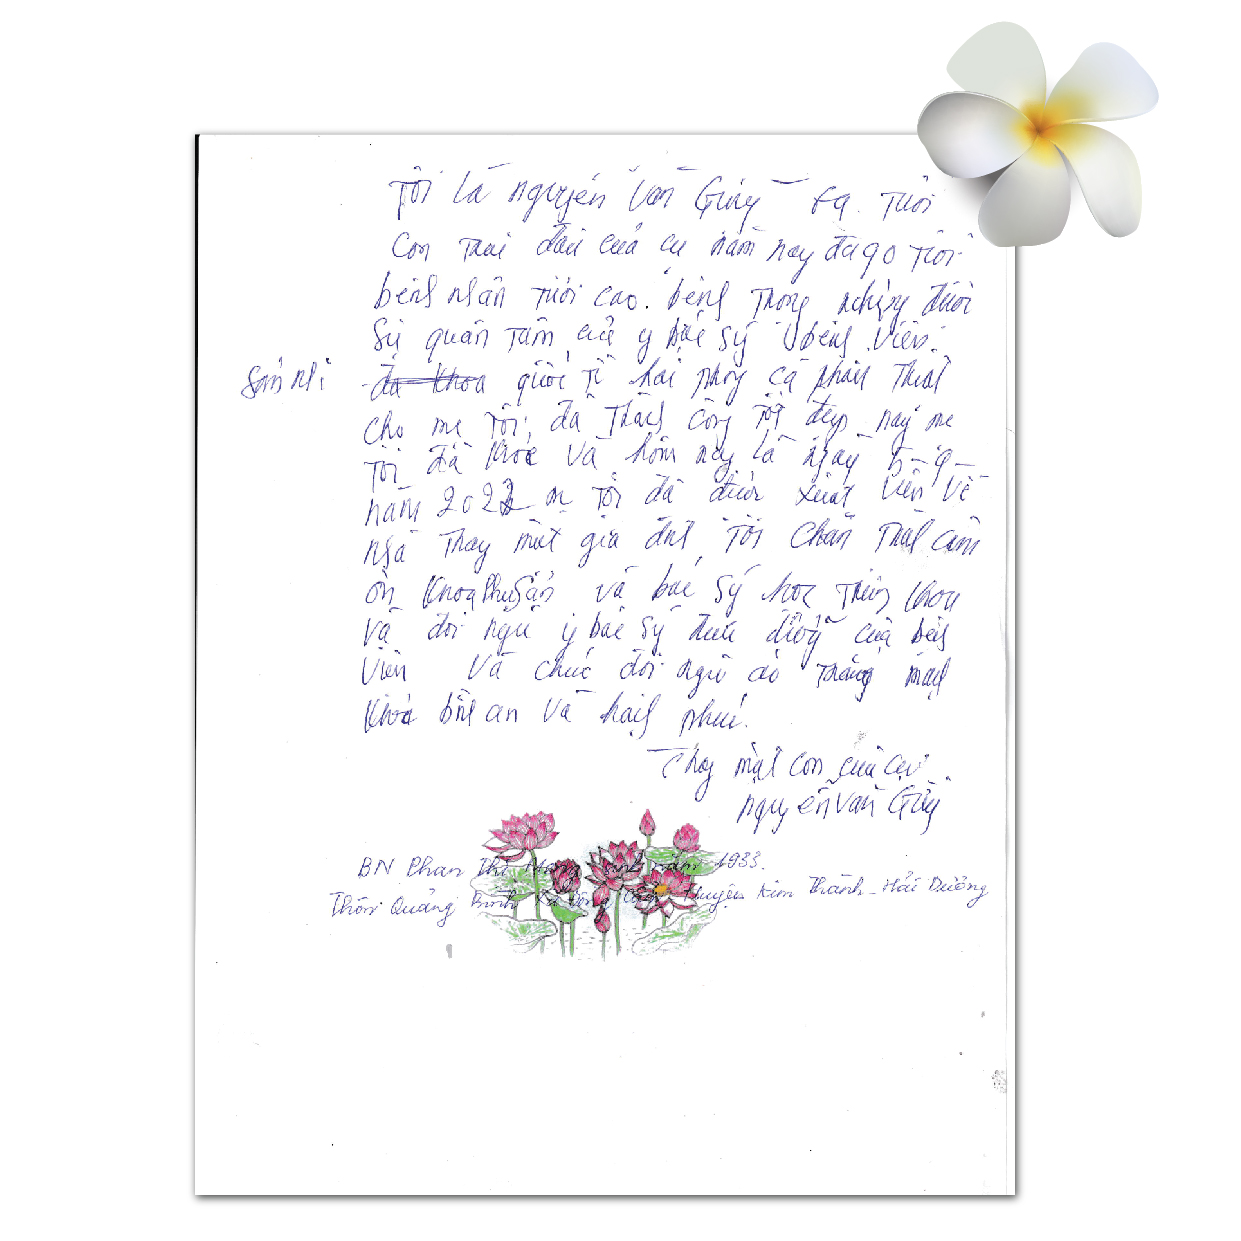 Tôi là nguyễn Văn Giáy 69. Tuổi
con trai đầu của cụ năm nay đã 90 tuổi
bệnh nhân tuổi cao. bệnh trong nghịy dưới
sự quan tâm của y bác sỹ bệnh viện.
Sản nhi đa khoa quốc tế hải phòng ca phẫu thuật
cho mẹ tôi, đã thành công tốt đẹp nay mẹ
tôi đã khỏe và hôm nay là ngày 5-9-
năm 2022 mẹ tôi đã được xuất viện về
nhà thay mặt gia đình tôi chân thật cảm
ơn khoa Phụ Sản và bác sỹ khoa
và đội ngũ y bác sỹ điều dưỡng của bệnh
viện và chúc đội ngũ áo trắng mạnh
khỏe bình an và hạnh phúc.
Thay mặt con của cụ
nguyễn Văn Giáy
BN Phan Thị năm 1933.
Thôn Quảng Bình Xã Huyện Kim Thành - Hải Dương